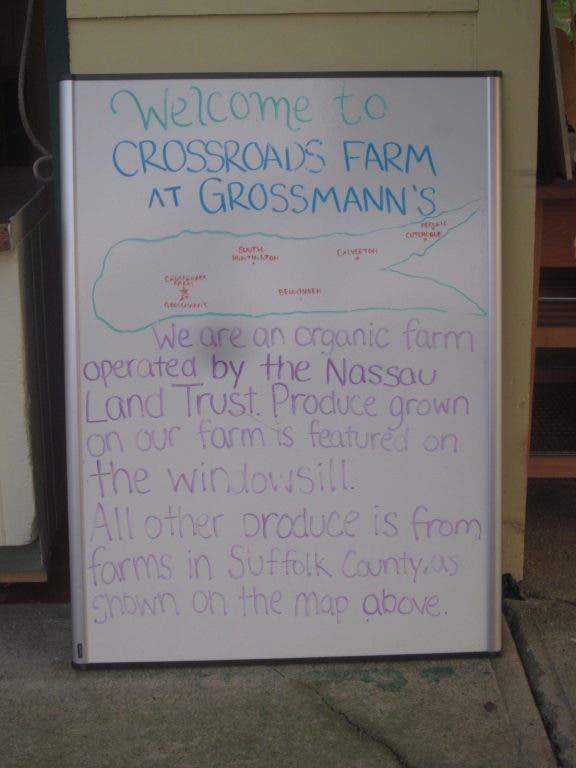 Welcome to
CROSSROADS FARM
AT GROSSMANN'S
CUTCHOGUE
SOUTH
HUNTINGTON
CALVERTON
CROSSROADS
FARM
AT
GROSSMANN'S
We are an organic farm
operated by the Nassau
Land Trust. Produce grown
on our farm is featured on
the windowsill.
All other produce is from
farms in Suffolk County, as
shown on the map above.